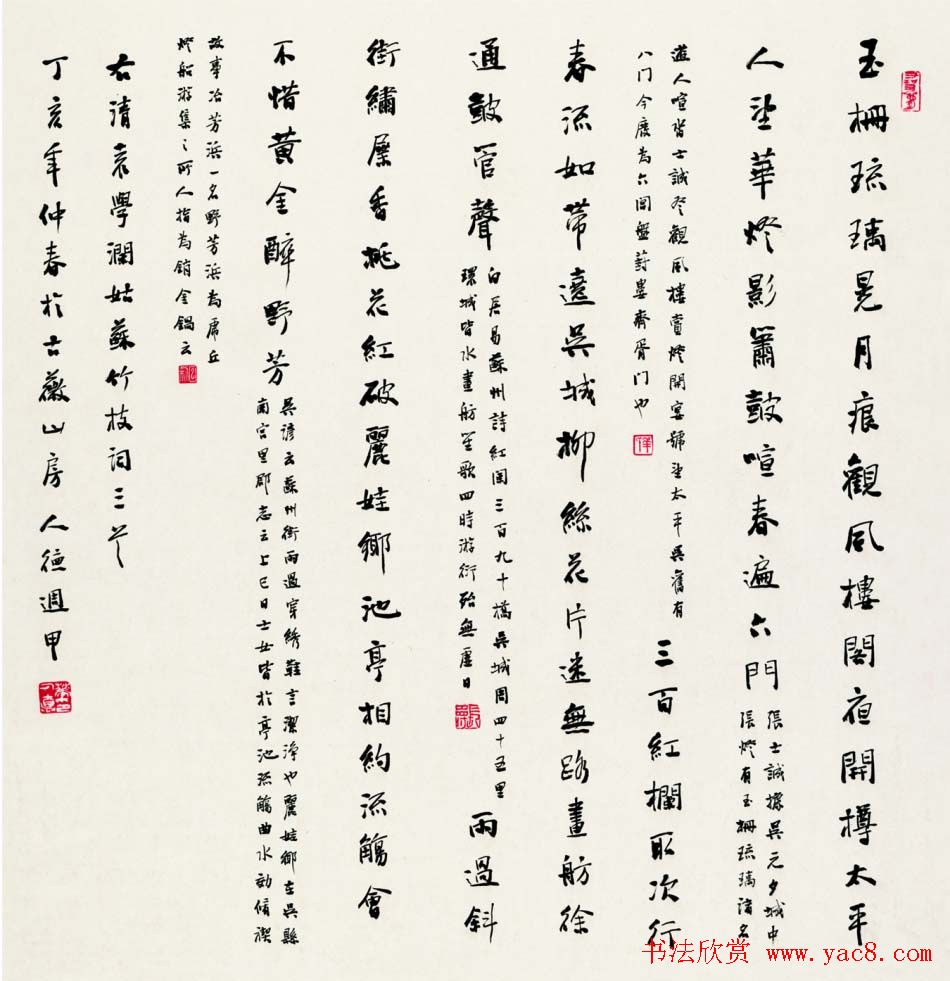 玉柵琉璃晃月痕觀風樓閣夜開樽太平
人望華燈影簫鼓喧春遍六門
張士誠據吳元夕城中
張燈有玉柵琉璃諸名
遊人喧沓士誠登觀風樓賞燈開宴號望太平吳舊有
八门今廢為六閶盤葑婁齊胥门也
三百紅欄取次行
春流如帶遶吳城柳絲花片迷無路畫舫徐
通鼓管聲
白居易蘇州詩紅闌三百九十橋吳城周四十五里
環城皆水畫舫笙歌四時游衍殆無虛日
雨過斜
街繡屧香桃花紅破麗娃鄉池亭相約流觴會
不惜黃金醉野芳
吳諺云蘇州街雨過穿綉鞋言潔淨也麗娃鄉在吳縣
南宫里郡志云上巳日士女皆於亭池流觴曲水劝脩禊
故事冶芳浜一名野芳浜為虎丘
燈船游集之所人指為銷金鍋云
右清袁學瀾姑蘇竹枝詞三首
丁亥年仲春於古薇山房人德週甲
书法欣赏 www.yac8.com